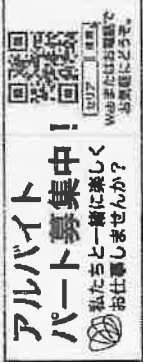 アルバイト
パート募集中!
私たちと一緒に楽しく
お仕事しませんか?
セリア
検索
Webまたはお電話で
お気軽にどうぞ。